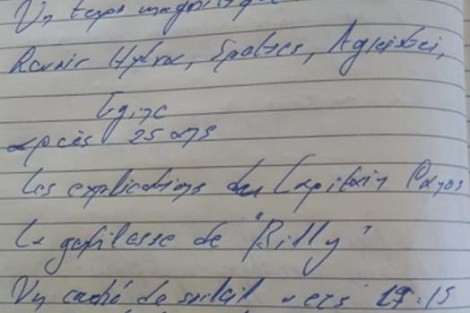 Un temps magnifique
Revoir Hydra, Spetses, Agistri,
Egine
après 25 ans
Les explications du Capitain
La gentilesse de "Billy"
Un couché de soleil vers 19:15